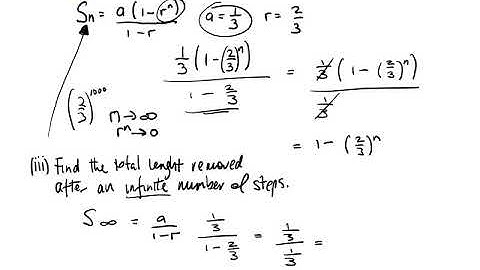 Sn = a(1-rⁿ)/1-r a=1/3 r=2/3
1/3(1-(2/3)ⁿ)/1-2/3 = 1/3(1-(2/3)ⁿ)/1/3
(2/3)¹⁰⁰⁰ n→∞
rⁿ→0
= 1-(2/3)ⁿ
(iii) Find the total lenght removed
after an infinite number of steps.
S∞ = a/1-r 1/3/1-2/3 = 1/3/1/3 =